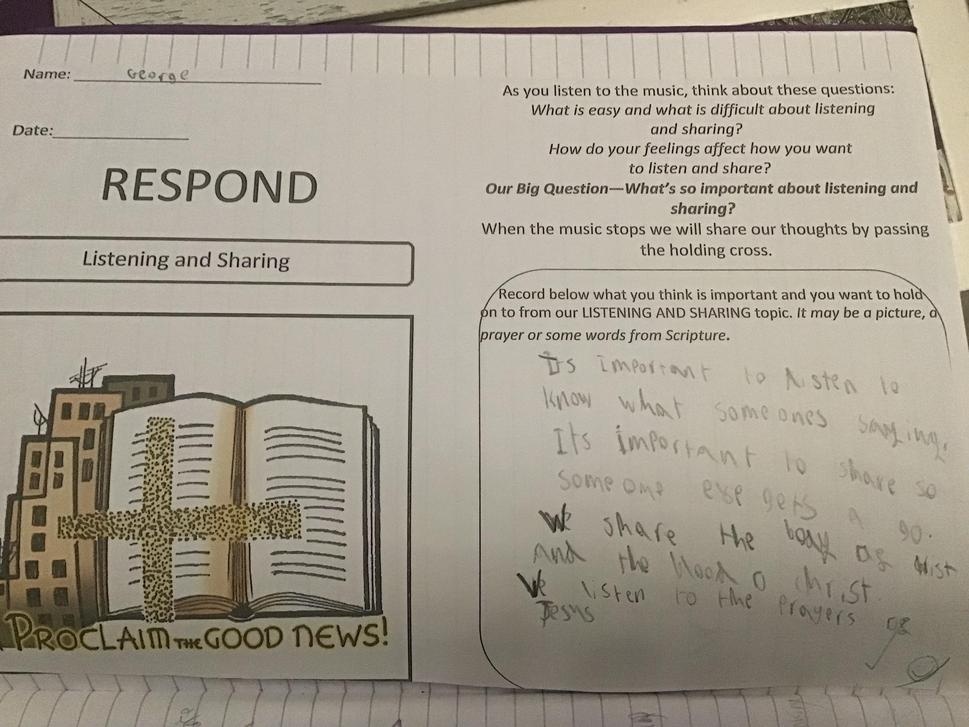 Name: George
Date:
RESPOND
Listening and Sharing
PROCLAIM THE GOOD NEWS!
As you listen to the music, think about these questions:
What is easy and what is difficult about listening
and sharing?
How do your feelings affect how you want
to listen and share?
Our Big Question—What's so important about listening and
sharing?
When the music stops we will share our thoughts by passing
the holding cross.
Record below what you think is important and you want to hold
on to from our LISTENING AND SHARING topic. It may be a picture, a
prayer or some words from Scripture.
Its important to listen to
know what someones saying.
Its important to share so
someone else gets a go.
We share the body of
And the blood o christ.
We listen to the prayers of
Jesus